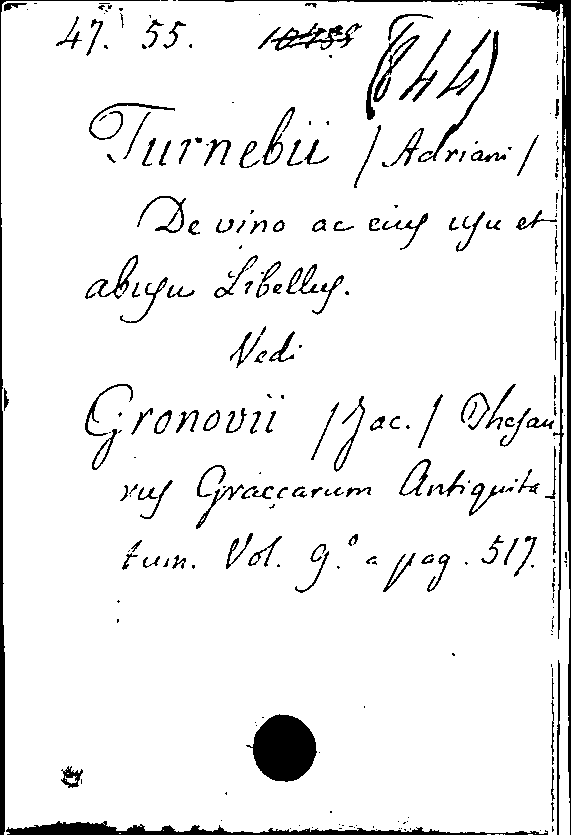 47. 55. (844)
Turnebii / Adriani /
De vino ac eius usu et
abusu Libellus.
Vedi
Gronovii / Jac. / Thesau-
rus Graecarum Antiquita-
tum. Vol. 9.º a pag. 517.